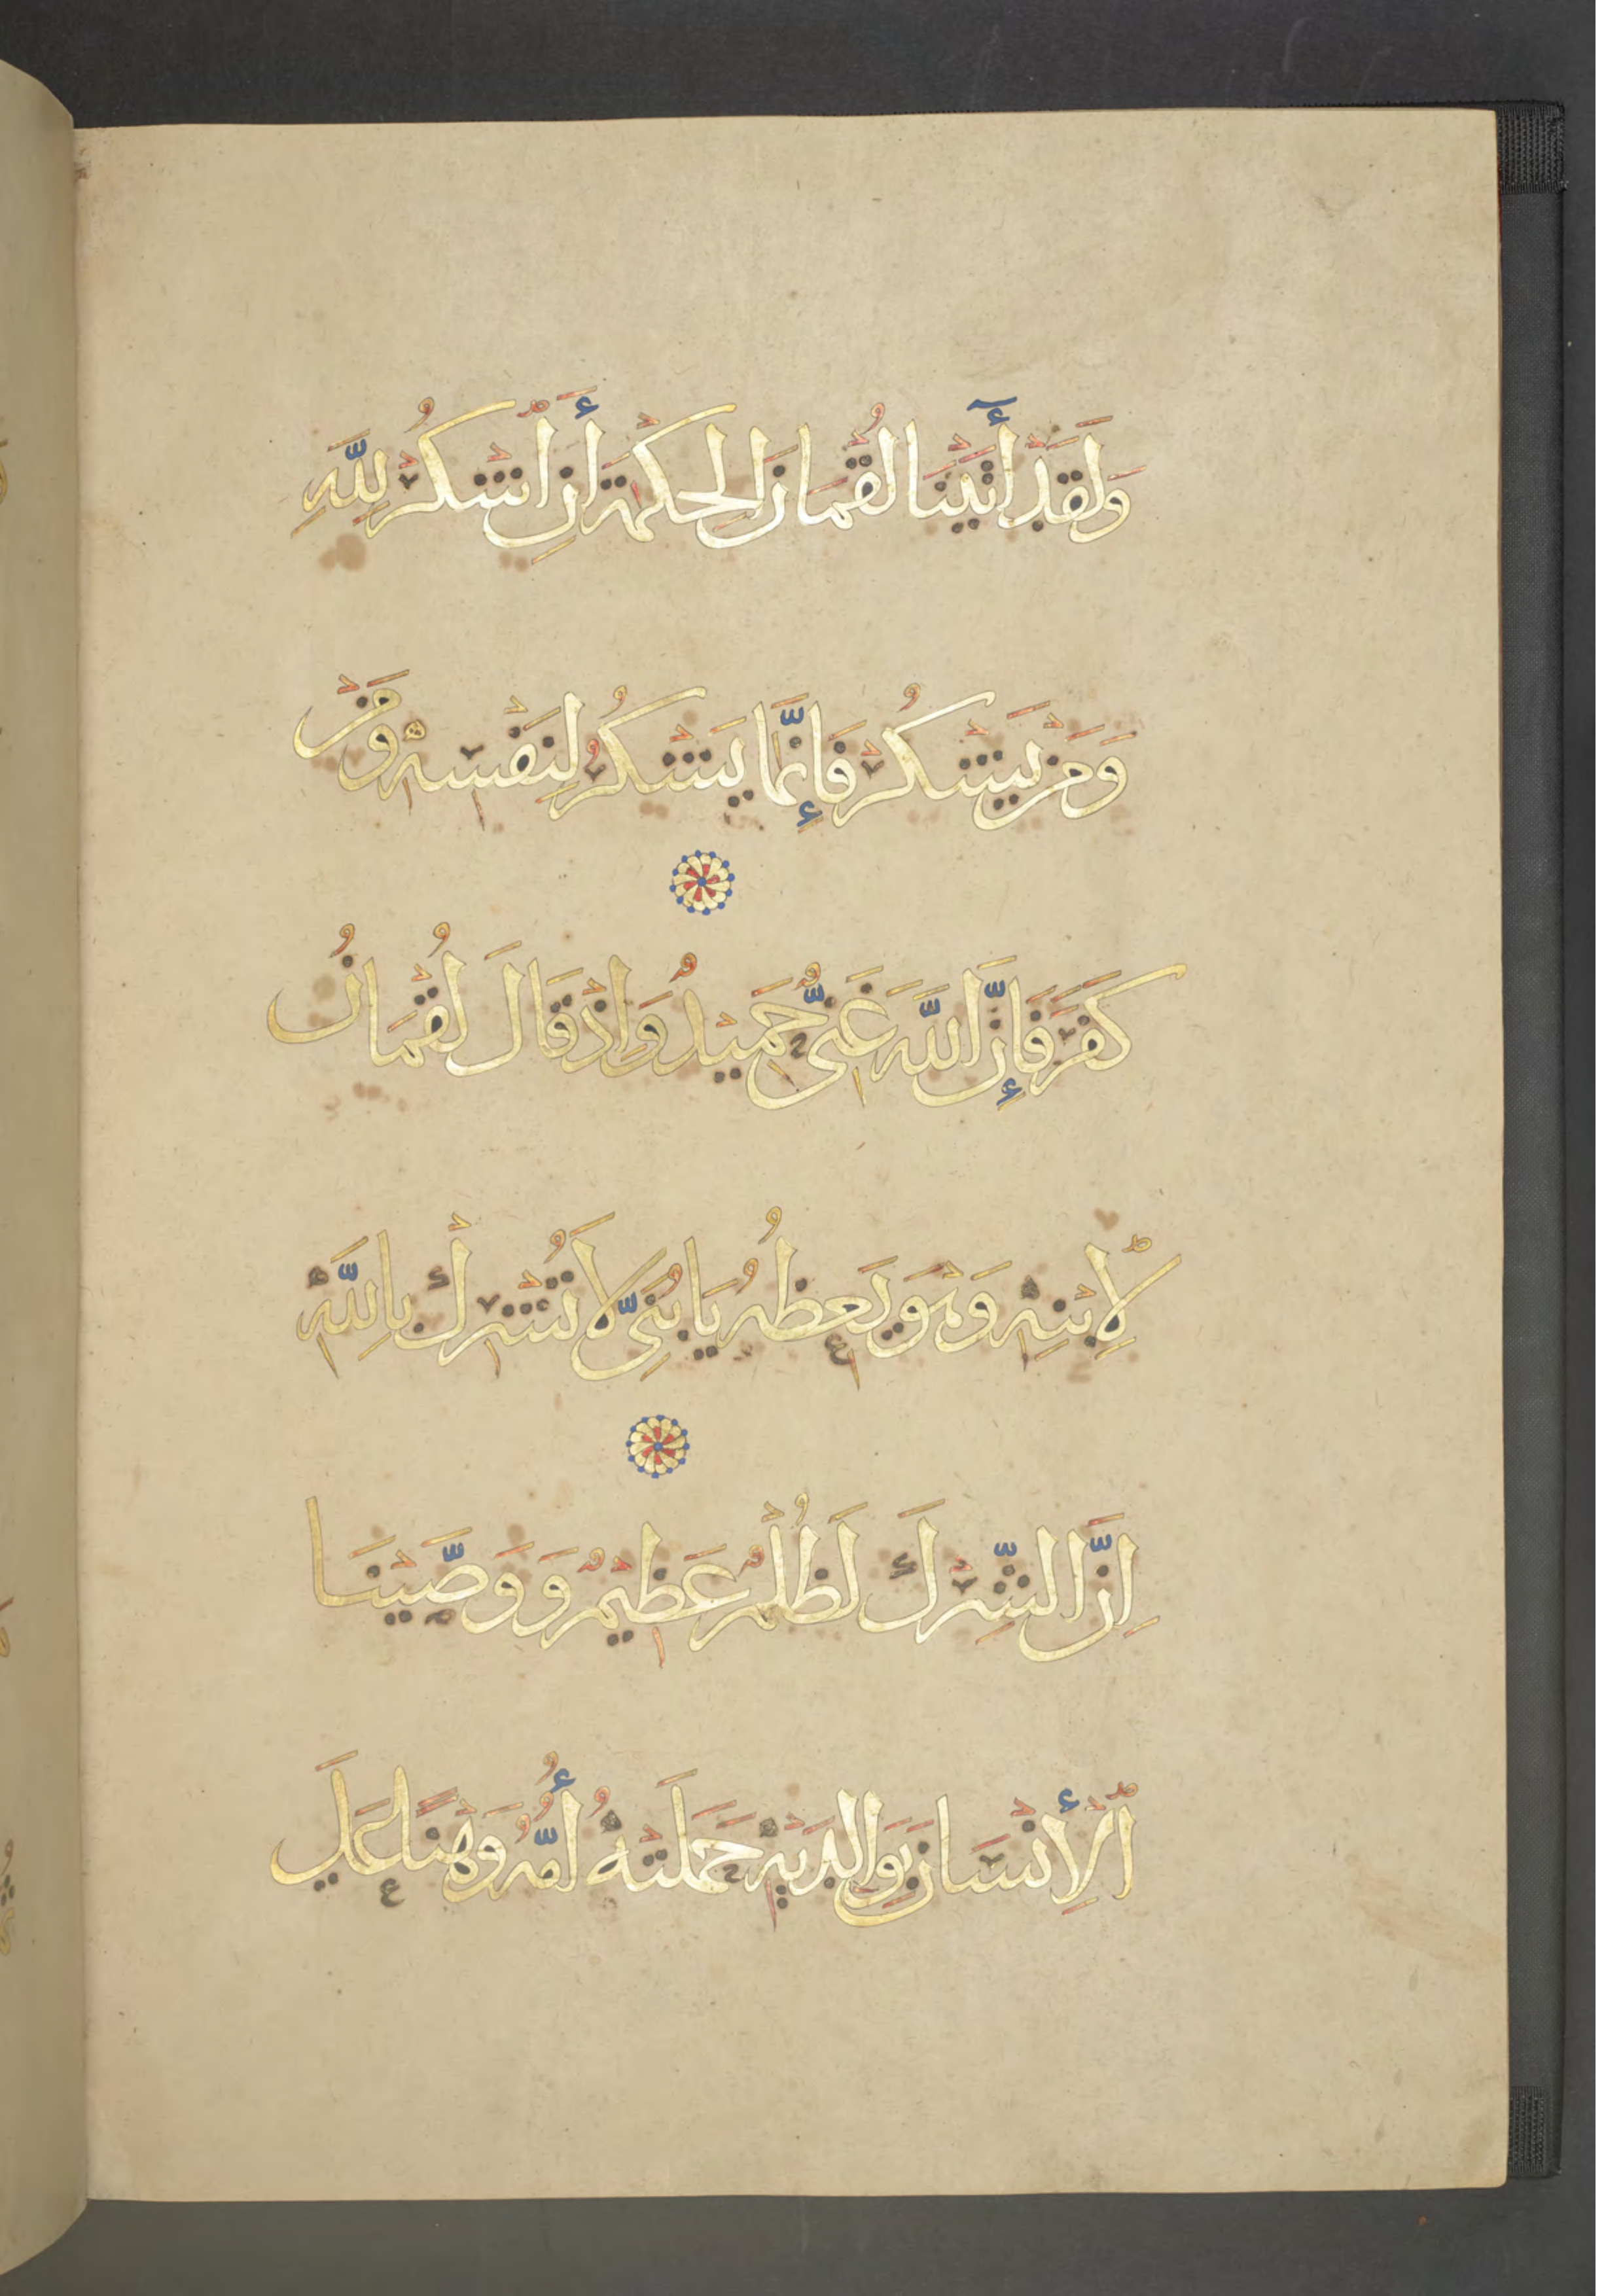 وَلَقَدْ أٓتَيْنَا لُقْمَانَ الْحِكْمَةَ أَنِ ٱشْكُرْ لِلَّهِ
وَمَنْ يَشْكُرْ فَإِنَّمَا يَشْكُرُ لِنَفْسِهِ وَمَنْ
كَفَرَ فَإِنَّ اللَّهَ غَنِيٌّ حَمِيدٌ وَاِذْ قَالَ لُقْمَانُ
لِٱبْنِهِ وَهْوَ يَعِظُهُ يَا بُنَيِّ لَا تُشْرِكْ بِاللَّهِ
اِنَّ الشِّرْكَ لَظُلْمٌ عَظِيمٌ وَوَصَّيْنَا
ٱلْأِنْسَانَ بِوَالِدَيْهِ حَمَلَتْهُ أُمُّهُ وَهْنًا عَلَي